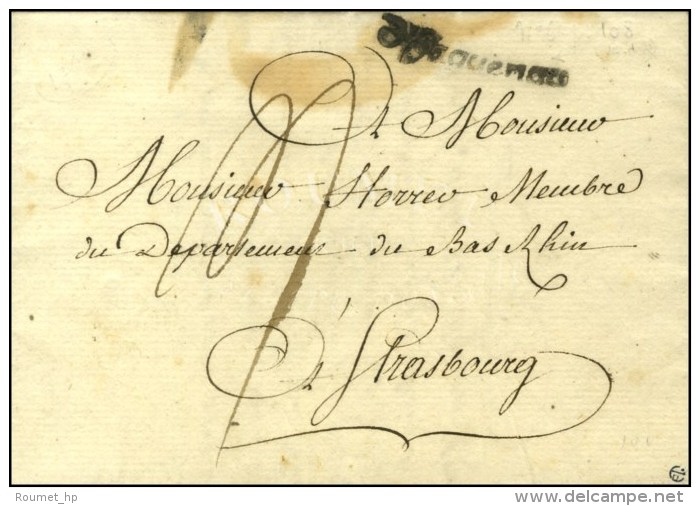 Haguenau
A Monsieur
Monsieur Horrer Membre
du Departement du Bas Rhin
A Strasbourg
Roumet_hp
www.delcampe.net